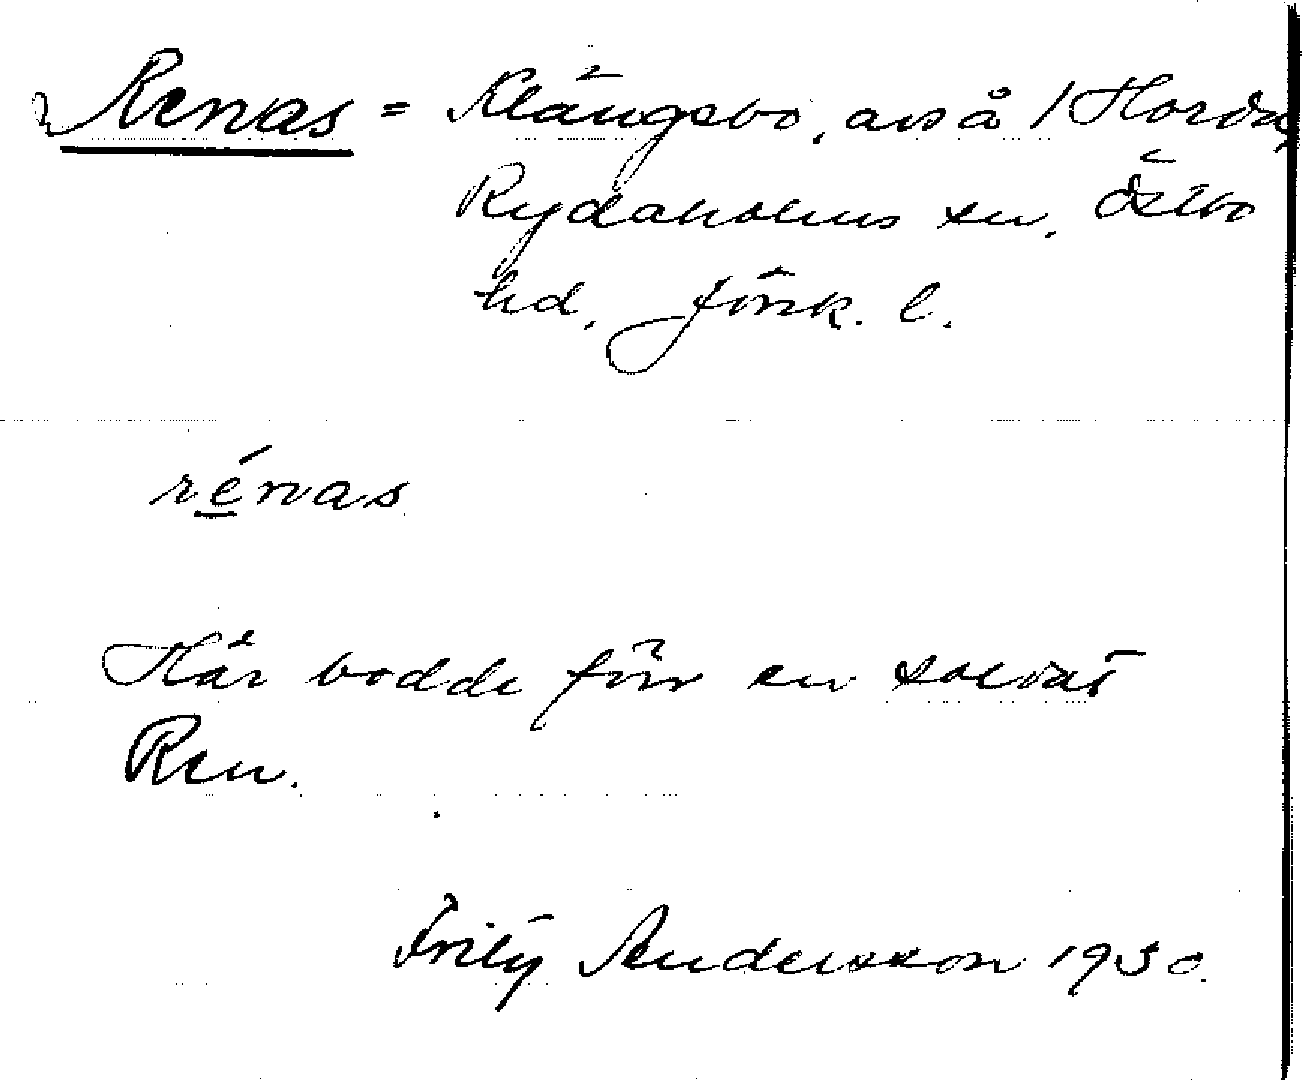 Renas = Klängsbo, avs å 1 Horda,
Rydaholms sn, Östbo
hd, Jönk. l.
rénas
Här bodde förr en soldat
Ren.
Frity Andersson 1930.